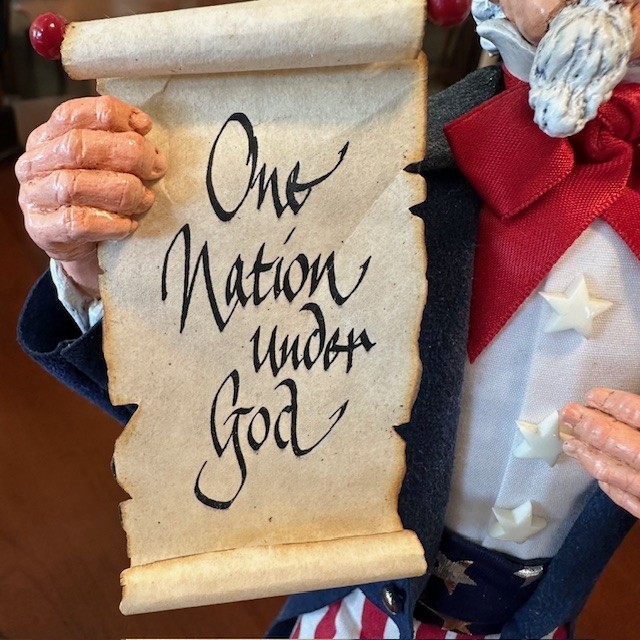 One
Nation
under
God